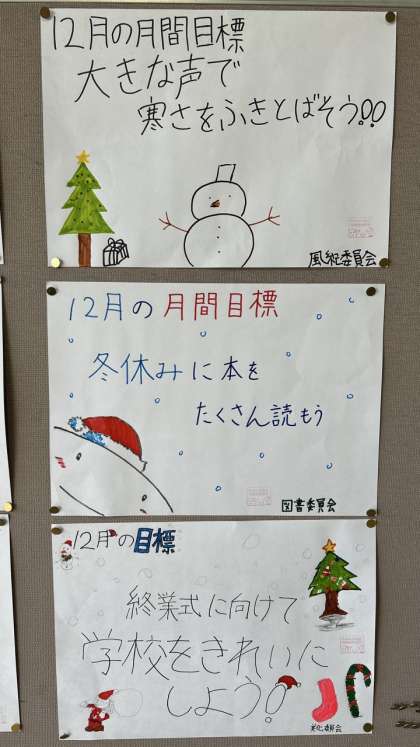 12月の月間目標
大きな声で
寒さをふきとばそう!!
風紀委員会
12月の月間目標
冬休みに本を
たくさん読もう
図書委員会
12月の目標
終業式に向けて
学校をきれいに
しよう!
美化委員会